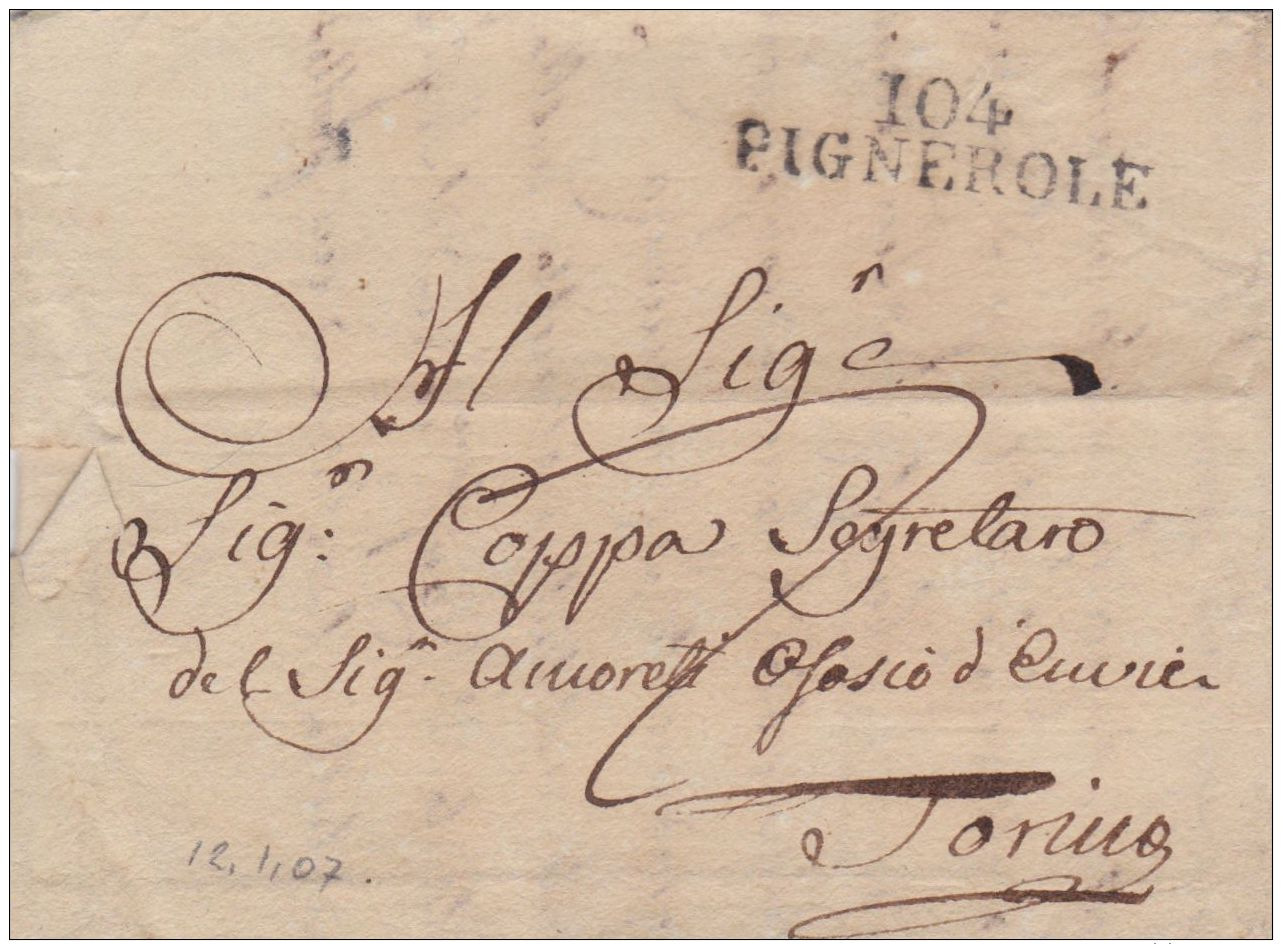 104
PIGNEROLE
Al Sig.r e
Sig.r: Coppa Segretaro
del Sig.r Amoretti Osasio d'Envie
Torino
12,1,07.